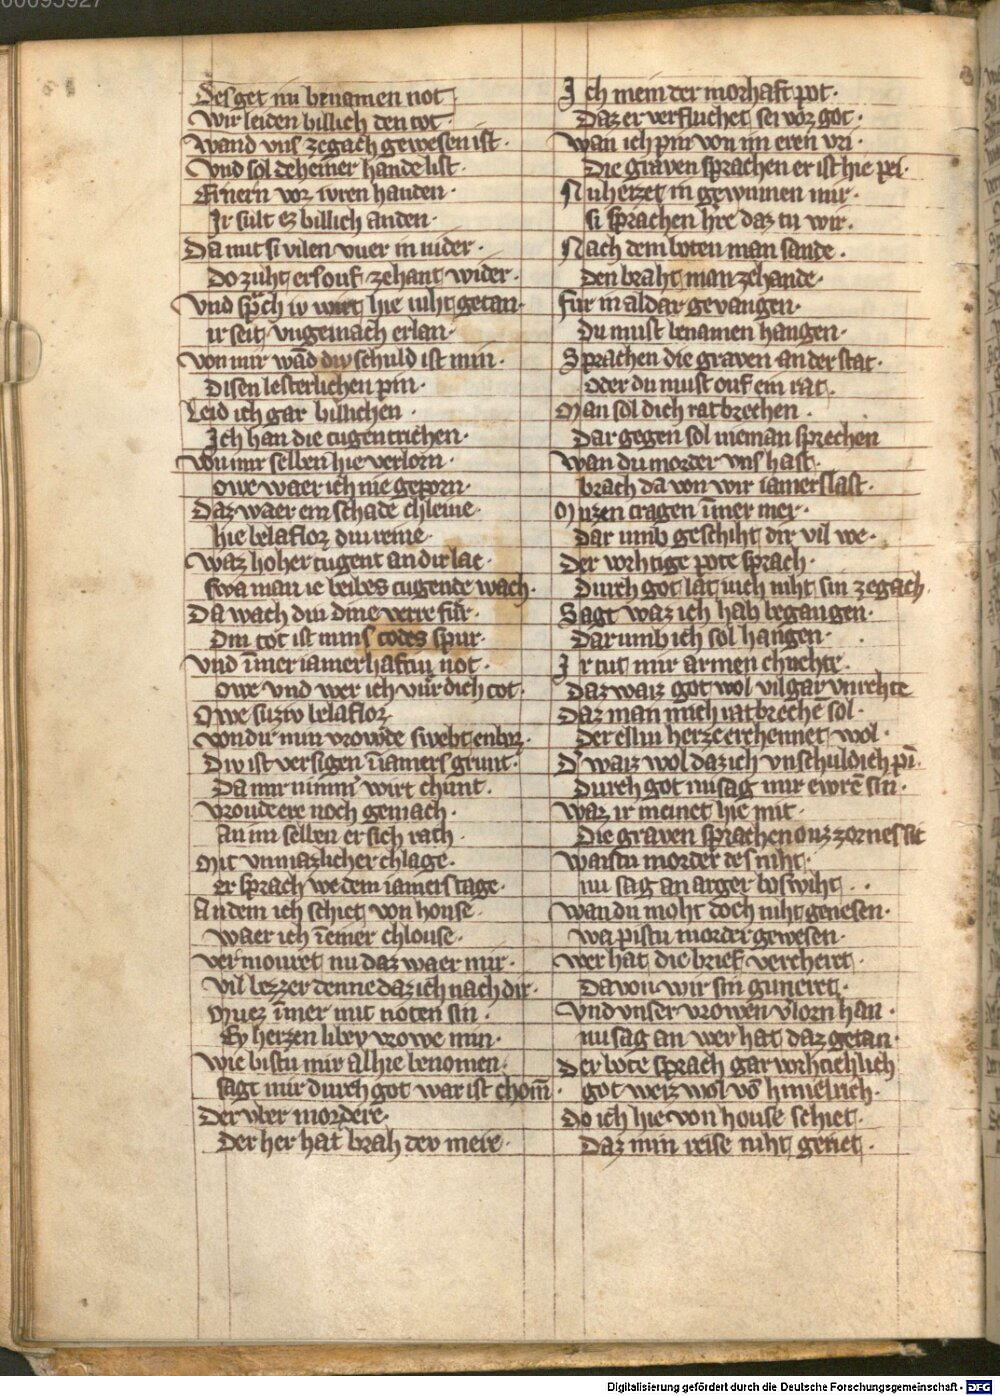 Des get nu benamen not
Wir leiden billich den tot
wand vns ze gach gewesen ist
Vnd sol deheiner hande list
Ernern vor iwren handen
Ir sult ez billich anden
Da mit si vilen vuer in nider
Do zuht er si ouf zehant wider
Vnd sprach iv wirt hie niht getan
ir seit vngemach erlan
Von mir wand div schuld ist min
Disen lesterlichen pin
Leid ich gar billichen
Ich han die tugentrichen
Von mir selben hie verlorn
owe waer ich nie geporn
Daz waer ein schade chleine
hie belaflor diu reine
waz hoher tugent an dir lac
swa man ie weibes tugende wach
Da wach diu dine verre fur
Din tot ist mins todes spur
Vnd imer iamerhaftiu not
owe vnd wer ich vur dich tot
Owe suziv belaflor
von dir min vrowde swebt enbor
Div ist versigen in iamers grunt
Da mir nimmer wirt chunt
vroude ere noch gemach
An im selben er sich rach
Mit vnmazlicher chlage
er sprach we dem iamers tage
An dem ich schiet von house
waer ich in einer chlouse
vermouret nu daz waer mir
vil bezzer denne daz ich nach dir
Muez imer mit noten sin
Ey herzen libev vrowe min
wie bistu mir alhie benomen
sagt mir durch got war ist chom
Der vber mordere
Der her hat brah dev mere
Ich mein der morhaft pot
Daz er verfluchet sei vor got
wan ich pin von im eren vri
Die graven sprachen er ist hie pei
Nu heizet in gewinnen mir
si sprachen hre daz tu wir
Nach dem boten man sande
Den braht man zehande
fur in aldar gevangen
Du must benamen hangen
Sprachen die graven an der stat
oder du must ouf ein rat
Man sol dich ratbrechen
Dar gegen sol nieman sprechen
wan du morder vns hast
brach da von wir iamers last
Muzen tragen imer mer
Dar umb geschiht dir vil we
Der vorhtige pote sprach
Durch got lat iuch niht sin ze gach
Sagt waz ich hab begangen
Dar umb ich sol hangen
Ir tut mir armen chnehte
Daz waiz got wol vil gar vnrehte
Daz man mich ratbreche sol
Der elliu herze erchennet wol
D waiz wol daz ich vnschuldich pi
Durch got nu sag mir ewre sin
waz ir meinet hie mit
Die graven sprachen ouz zornes sit
waistu morder des niht
nu sag an arger boswiht
wan du moht doch niht genesen
wa pistu morder gewesen
wer hat die brief vercheret
Da von wir sin guneret
Vnd vnser vrowen vlorn han
nu sag an wer hat daz getan
Der bote sprach gar vorhtichlich
got weiz wol vo himelrich
Do ich hie von house schiet
Daz min reise niht geriet
Digitalisierung gefördert durch die Deutsche Forschungsgemeinschaft - DFG